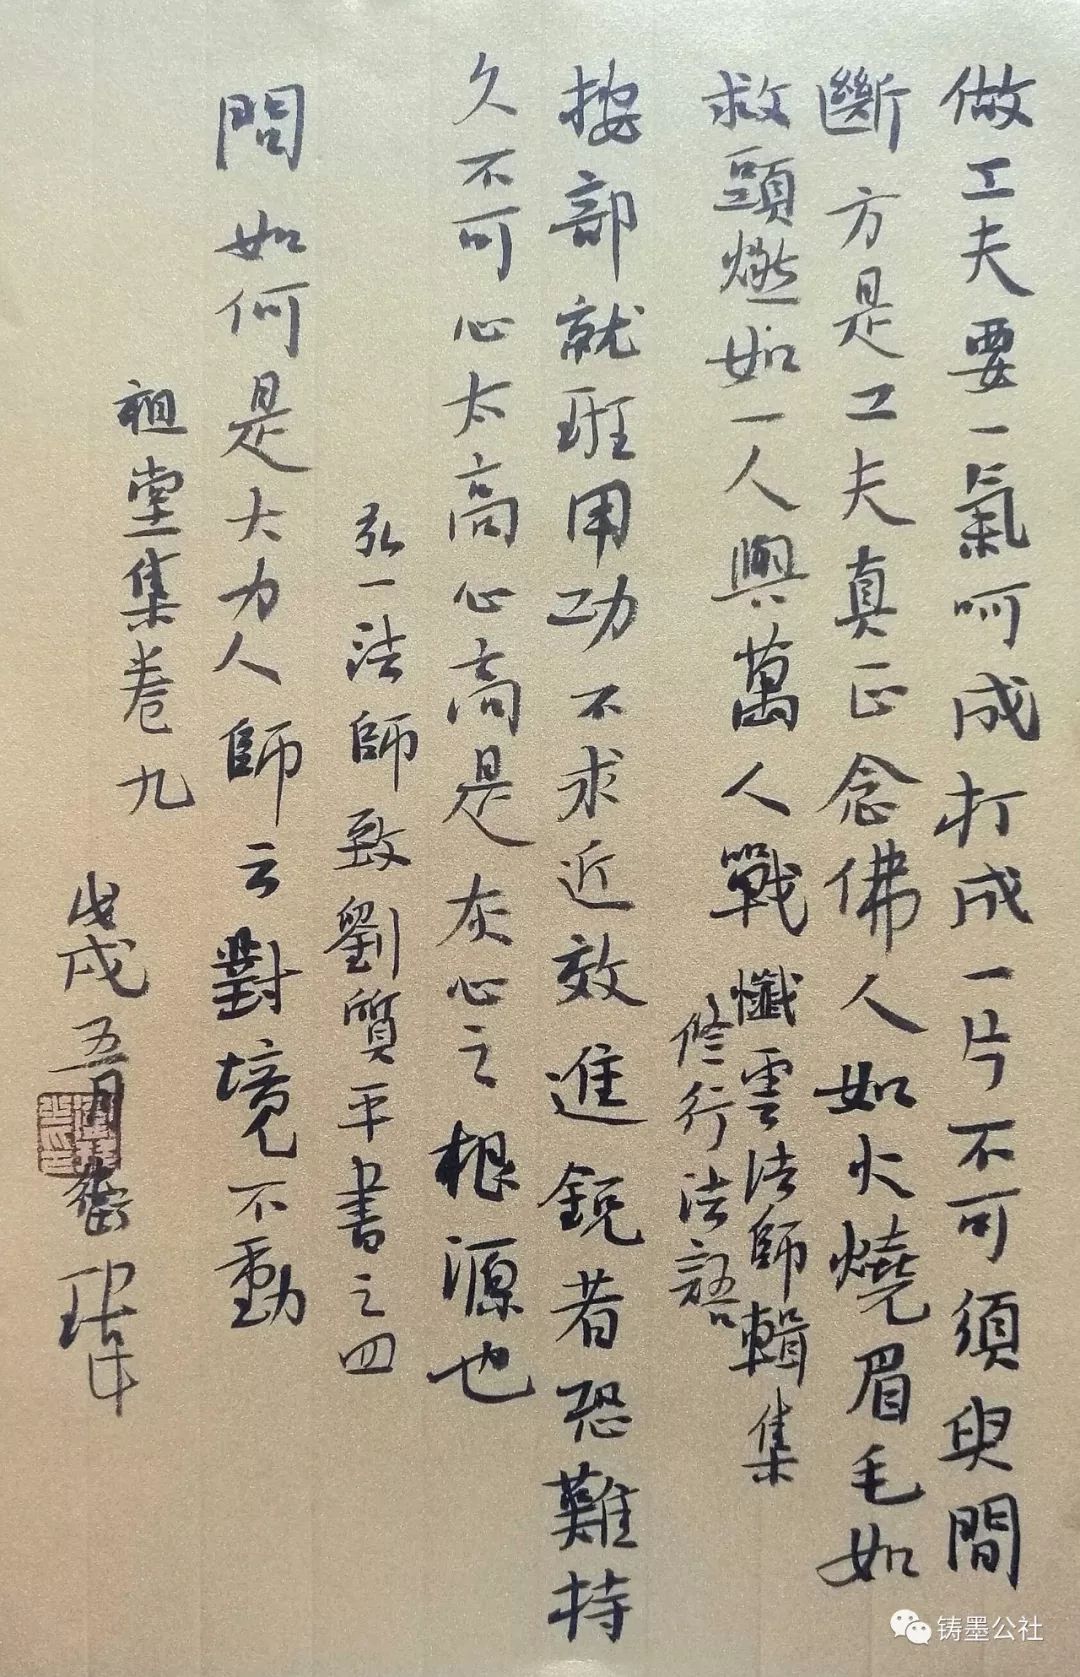 做工夫要一氣呵成打成一片不可須臾間
斷方是工夫真正念佛人如火燒眉毛如
救頭燃如一人與萬人戰
懺雲法師輯集
修行法語
按部就班用功不求近效進銳者恐難持
久不可心太高心高是灰心之根源也
弘一法師致劉質平書之四
問如何是大力人師云對境不動
祖堂集卷九
戊戌五月
铸墨公社